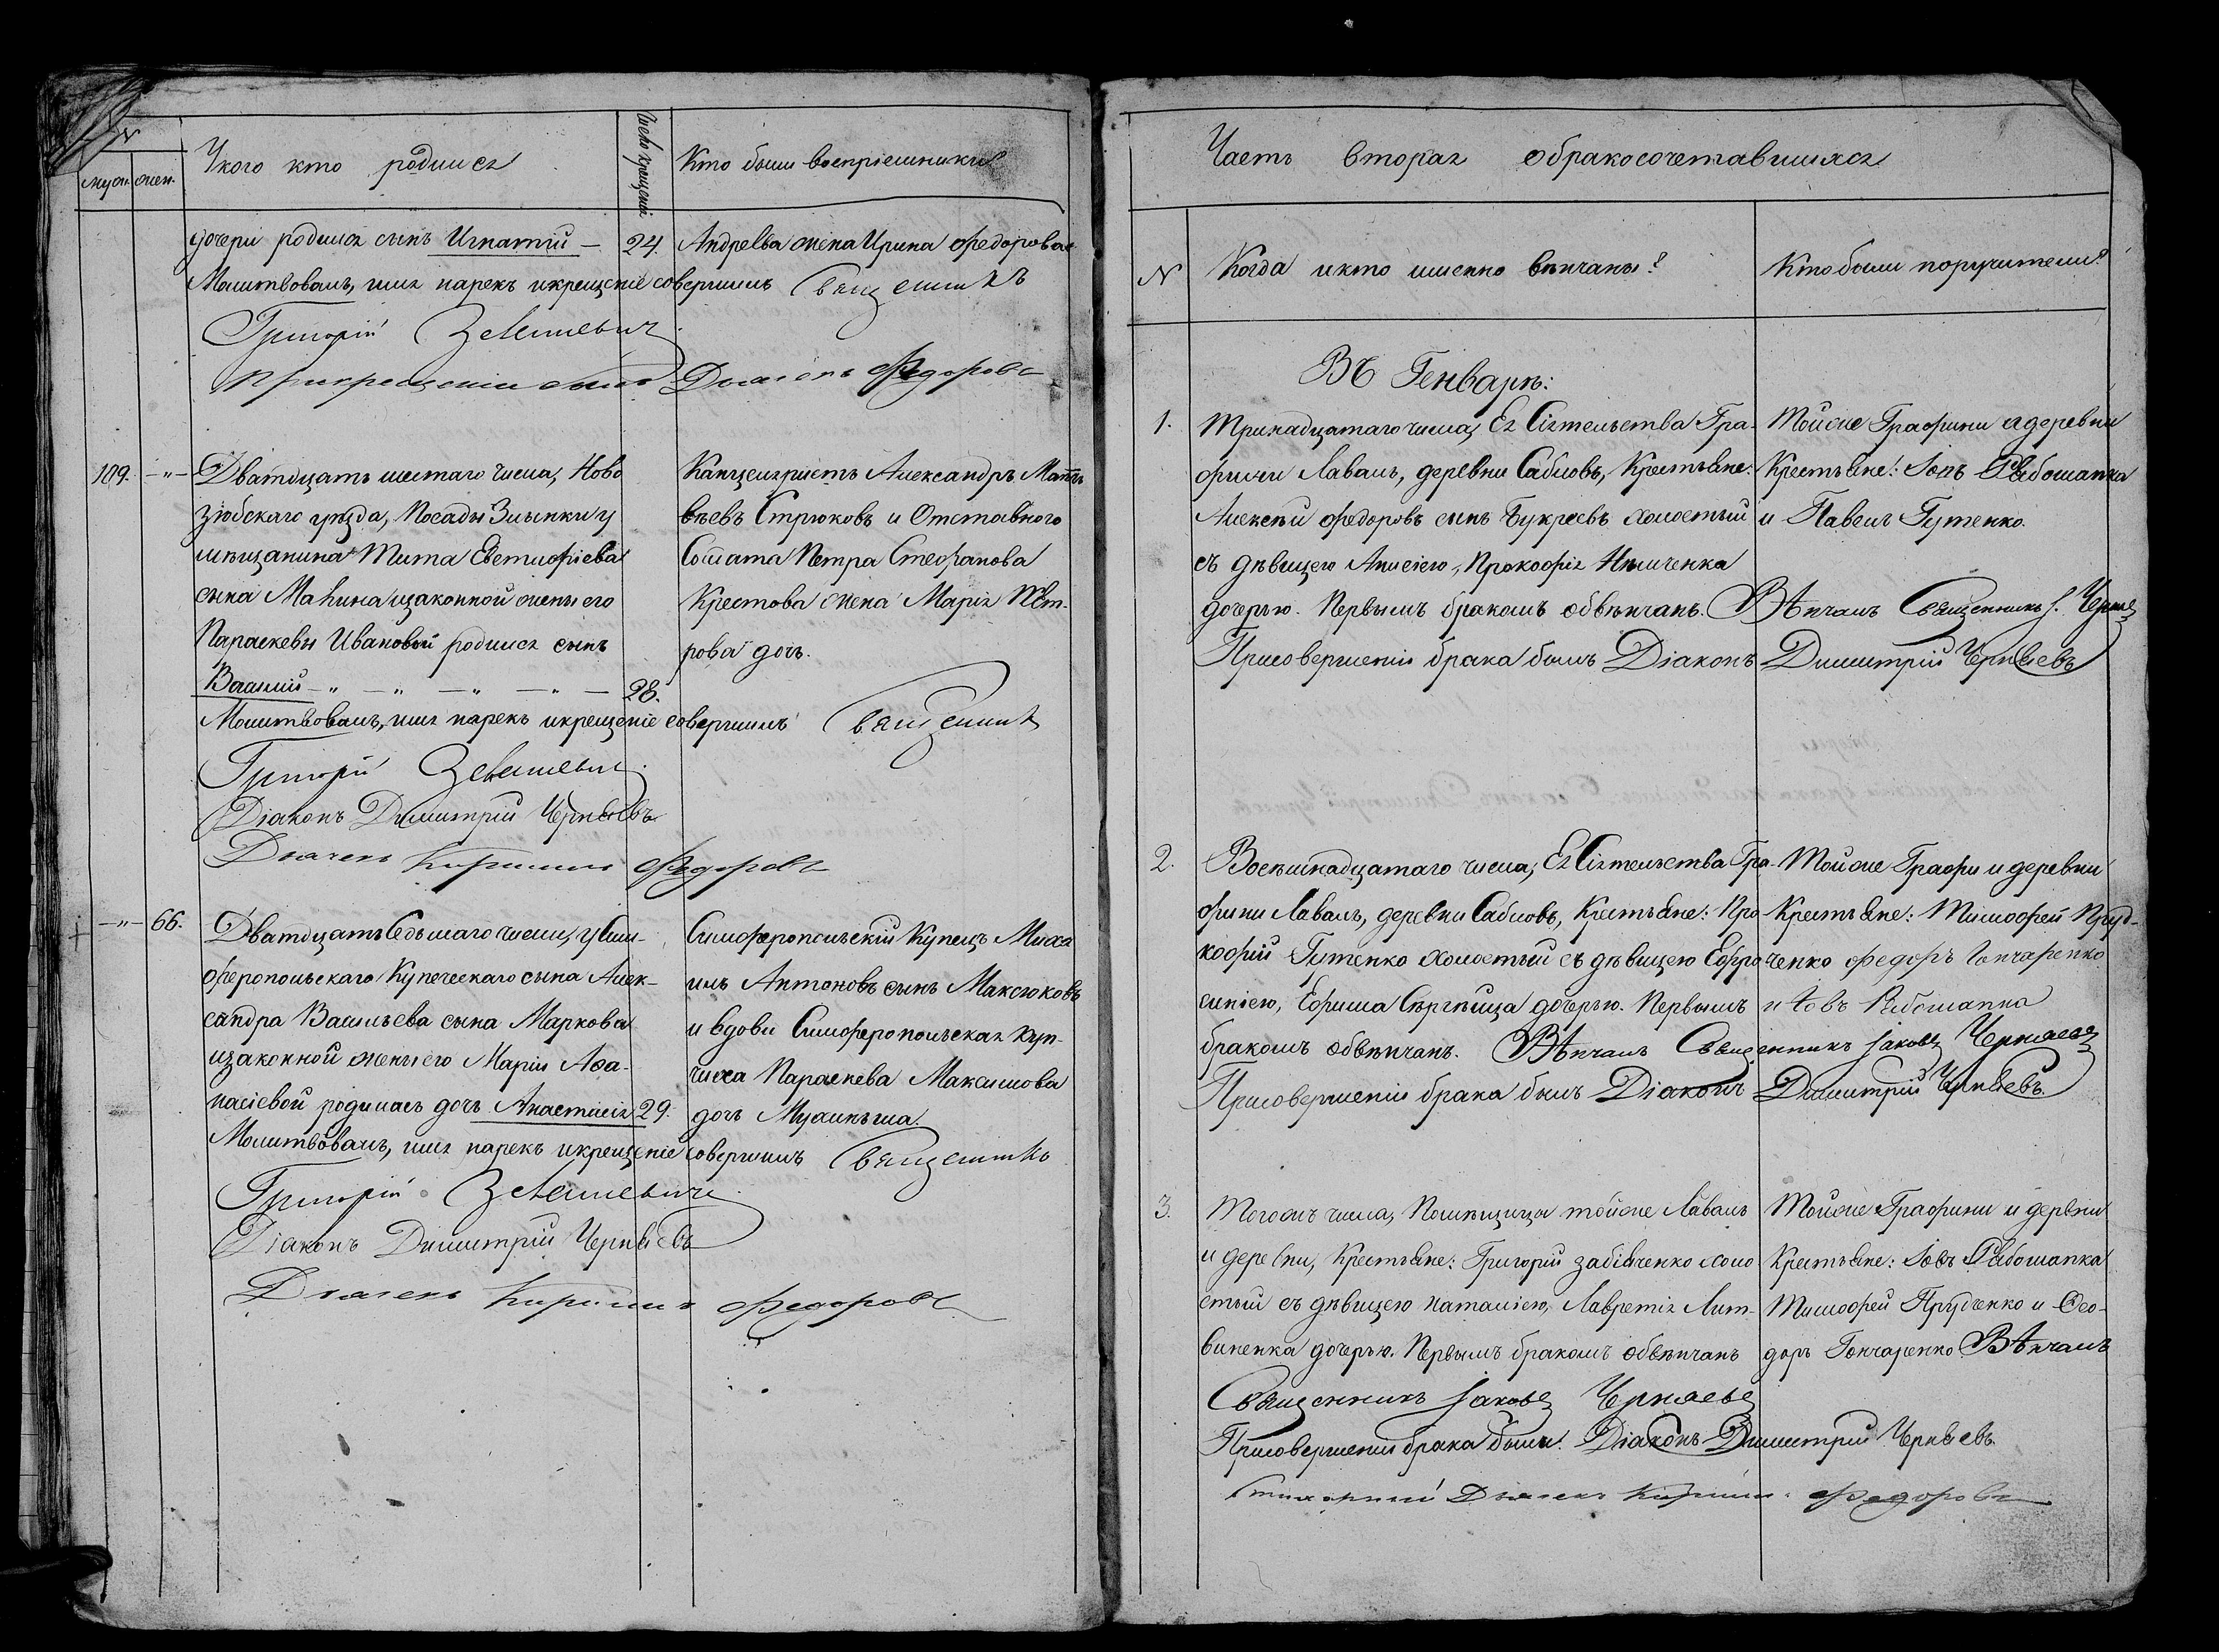 N
муж. жен.
У кого кто родился
Число крещенія
Кто были воспріемники
дочери родился сынъ Игнатій — 24.
Андреева жена Ирина Федорова
Молитвовалъ, имя нарекъ и крещеніе совершилъ Священникъ
Григорій
При крещеніи былъ Дьячекъ Федоровъ
109. —"— Дватдцать шестаго числа, Ново
зюбскаго уѣзда, Посады Злынки у
мѣщанина Тита Евстифіева
сына Махина и законной жены его
Параскевы Ивановой родился сынъ
Василій —"— —"— —"— —"— 28.
Канцеляристъ Александръ Матъ
вѣевъ Стрюковъ и Отставного
Солдата Петра Стефанова
Крестова жена Марія Пет-
рова дочь.
Молитвовалъ, имя нарекъ и крещеніе совершилъ Священникъ
Григорій
Діаконъ Димитрій Черняевъ
Дьячекъ Кириллъ Федоровъ
—"— 66. Дватдцать Седьмаго числа, у Сим-
феропольскаго Купеческаго сына Алек-
сандра Васильева сына Маркова
и законной жены его Маріи Афа-
насіевой родилась дочь Анастасія 29.
Симферопольскій Купецъ Миха
илъ Антоновъ сынъ Максюковъ
и вдова Симферопольская Куп-
чиха Параскева Максимова
дочь
Молитвовалъ, имя нарекъ и крещеніе совершилъ Священникъ
Григорій
Діаконъ Димитрій Черняевъ
Дьячекъ Кириллъ Федоровъ
Часть вторая о бракосочетавшихся
N
Когда и кто именно вѣнчаны?
Кто были поручители?
Въ Генварѣ:
1. Тринадцатаго числа, Ея Сіятельства Гра-
фини Лаваль, деревни Сабловъ, Крестьяне:
Алексѣй Федоровъ сынъ Букреевъ холостый
съ дѣвицею Анисіею, Прокофія Нѣмченка
дочерью. Первымъ бракомъ обвѣнчанъ. Вѣнчалъ Священникъ І. Черняевъ
Тойже Графини и деревни
Крестьяне: Іовъ Рябошапка
и Павелъ Гутенко.
При совершеніи брака былъ Діаконъ Димитрій Черняевъ
2. Восѣмнадцатаго числа, Ея Сіятельства Гра-
фини Лаваль, деревни Сабловъ, Крестьяне: Про
кофій Гутенко холостый съ дѣвицею Ефро
синіею, Ефима дочерью. Первымъ
бракомъ обвѣнчанъ. Вѣнчалъ Священникъ Іаковъ Черняевъ
Тойже Графи и деревни
Крестьяне: Тимофей Пруд-
ченко Федоръ Гончаренко
и Іовъ Рябошапка
При совершеніи брака былъ Діаконъ Димитрій Черняевъ.
3. Тогожъ числа, Помѣщицы тойже Лаваль
и деревни, Крестьяне: Григорій Забіяченко холо
стый съ дѣвицею Наталіею, Лаврентія Лит-
виненка дочерью. Первымъ бракомъ обвѣнчанъ
Тойже Графини и дервни
Крестьяне: Іовъ Рябошапка
Тимофей Прудченко и Ѳео-
доръ Гончаренко Вѣнчалъ
Священникъ Іаковъ Черняевъ
При совершеніи брака были: Діаконъ Димитрій Черняевъ.
Стихарный Дьячекъ Кириллъ Федоровъ